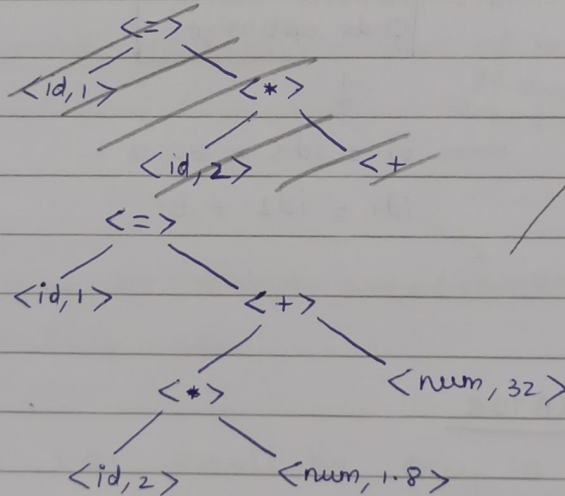 <=>
<id,1> <*>
<id,2> <+
<=>
<id,1> <+>
<*> <num,32>
<id,2> <num,1.8>